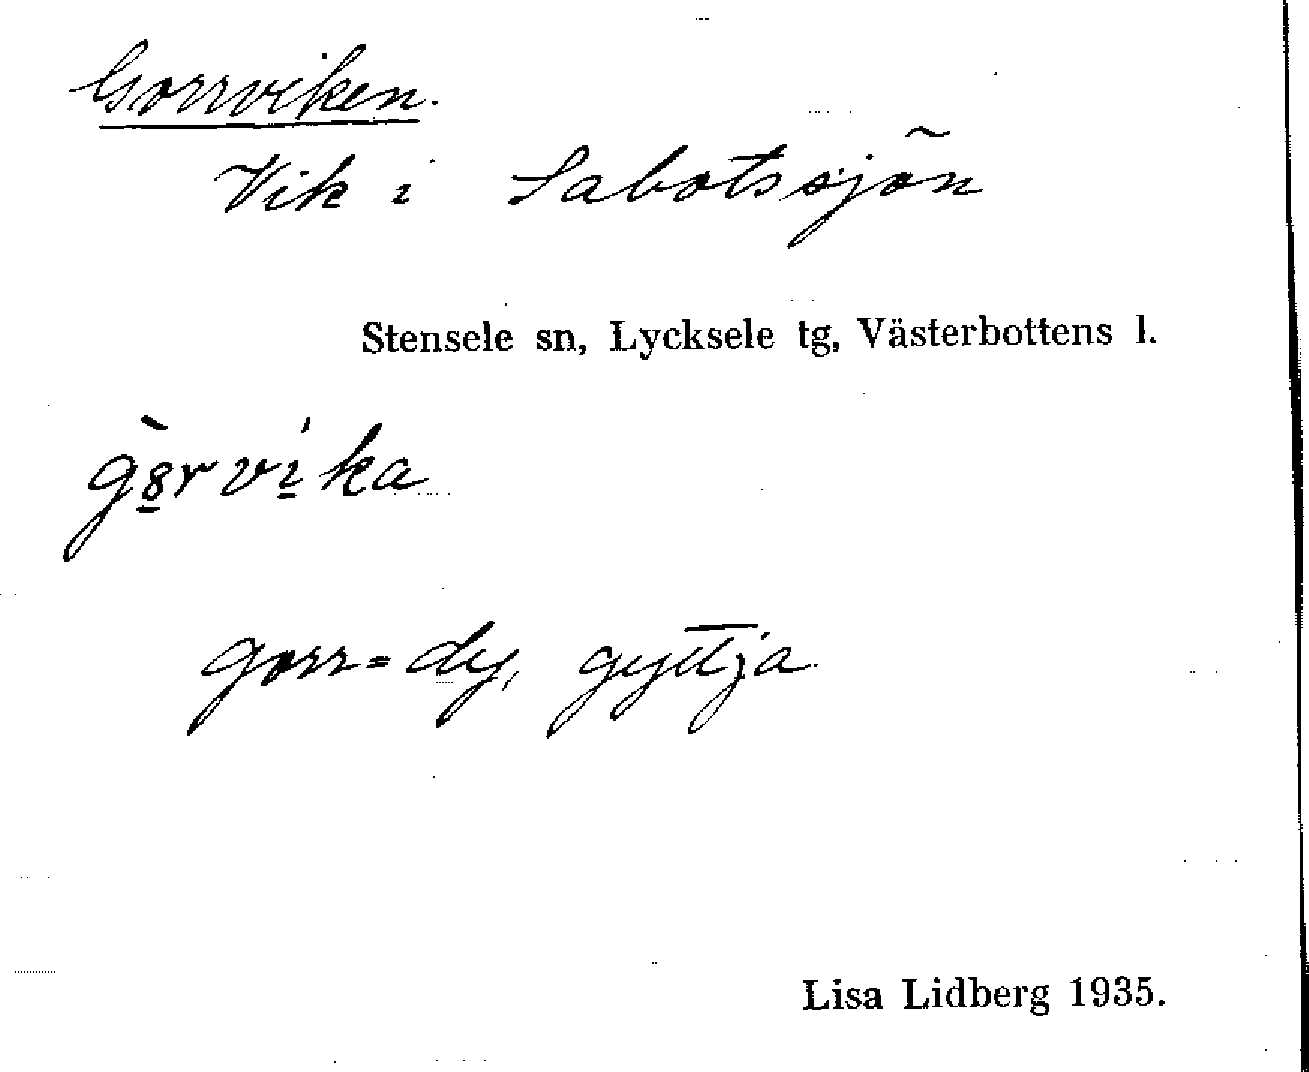 Gorrviken.
Vik i Sabotssjön
Stensele sn, Lycksele tg, Västerbottens l.
gò̱rvi̱ka
gorr = dy, gyttja
Lisa Lidberg 1935.